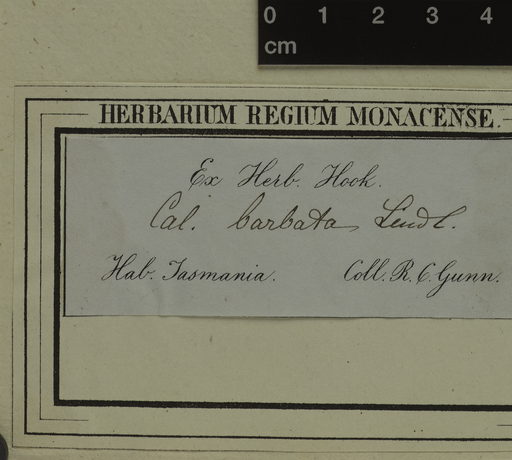 0 1 2 3 4
cm
HERBARIUM REGIUM MONACENSE.
Ex Herb. Hook.
Cal. barbata Lindl.
Hab. Tasmania. Coll. R. C. Gunn.